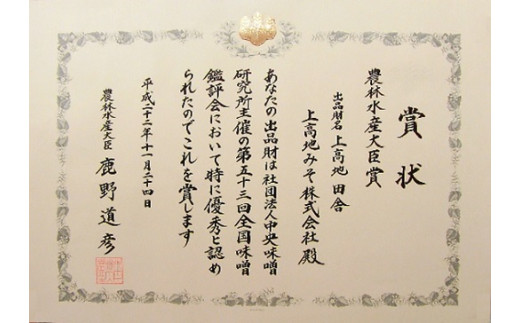 賞状
農林水産大臣賞
出品財名 上高地 田舎
上高地みそ株式会社殿
あなたの出品財は社団法人中央味噌
研究所主催の第五十三回全国味噌
鑑評会において特に優秀と認め
られたのでこれを賞します
平成二十二年十一月二十四日
農林水産大臣 鹿野道彦